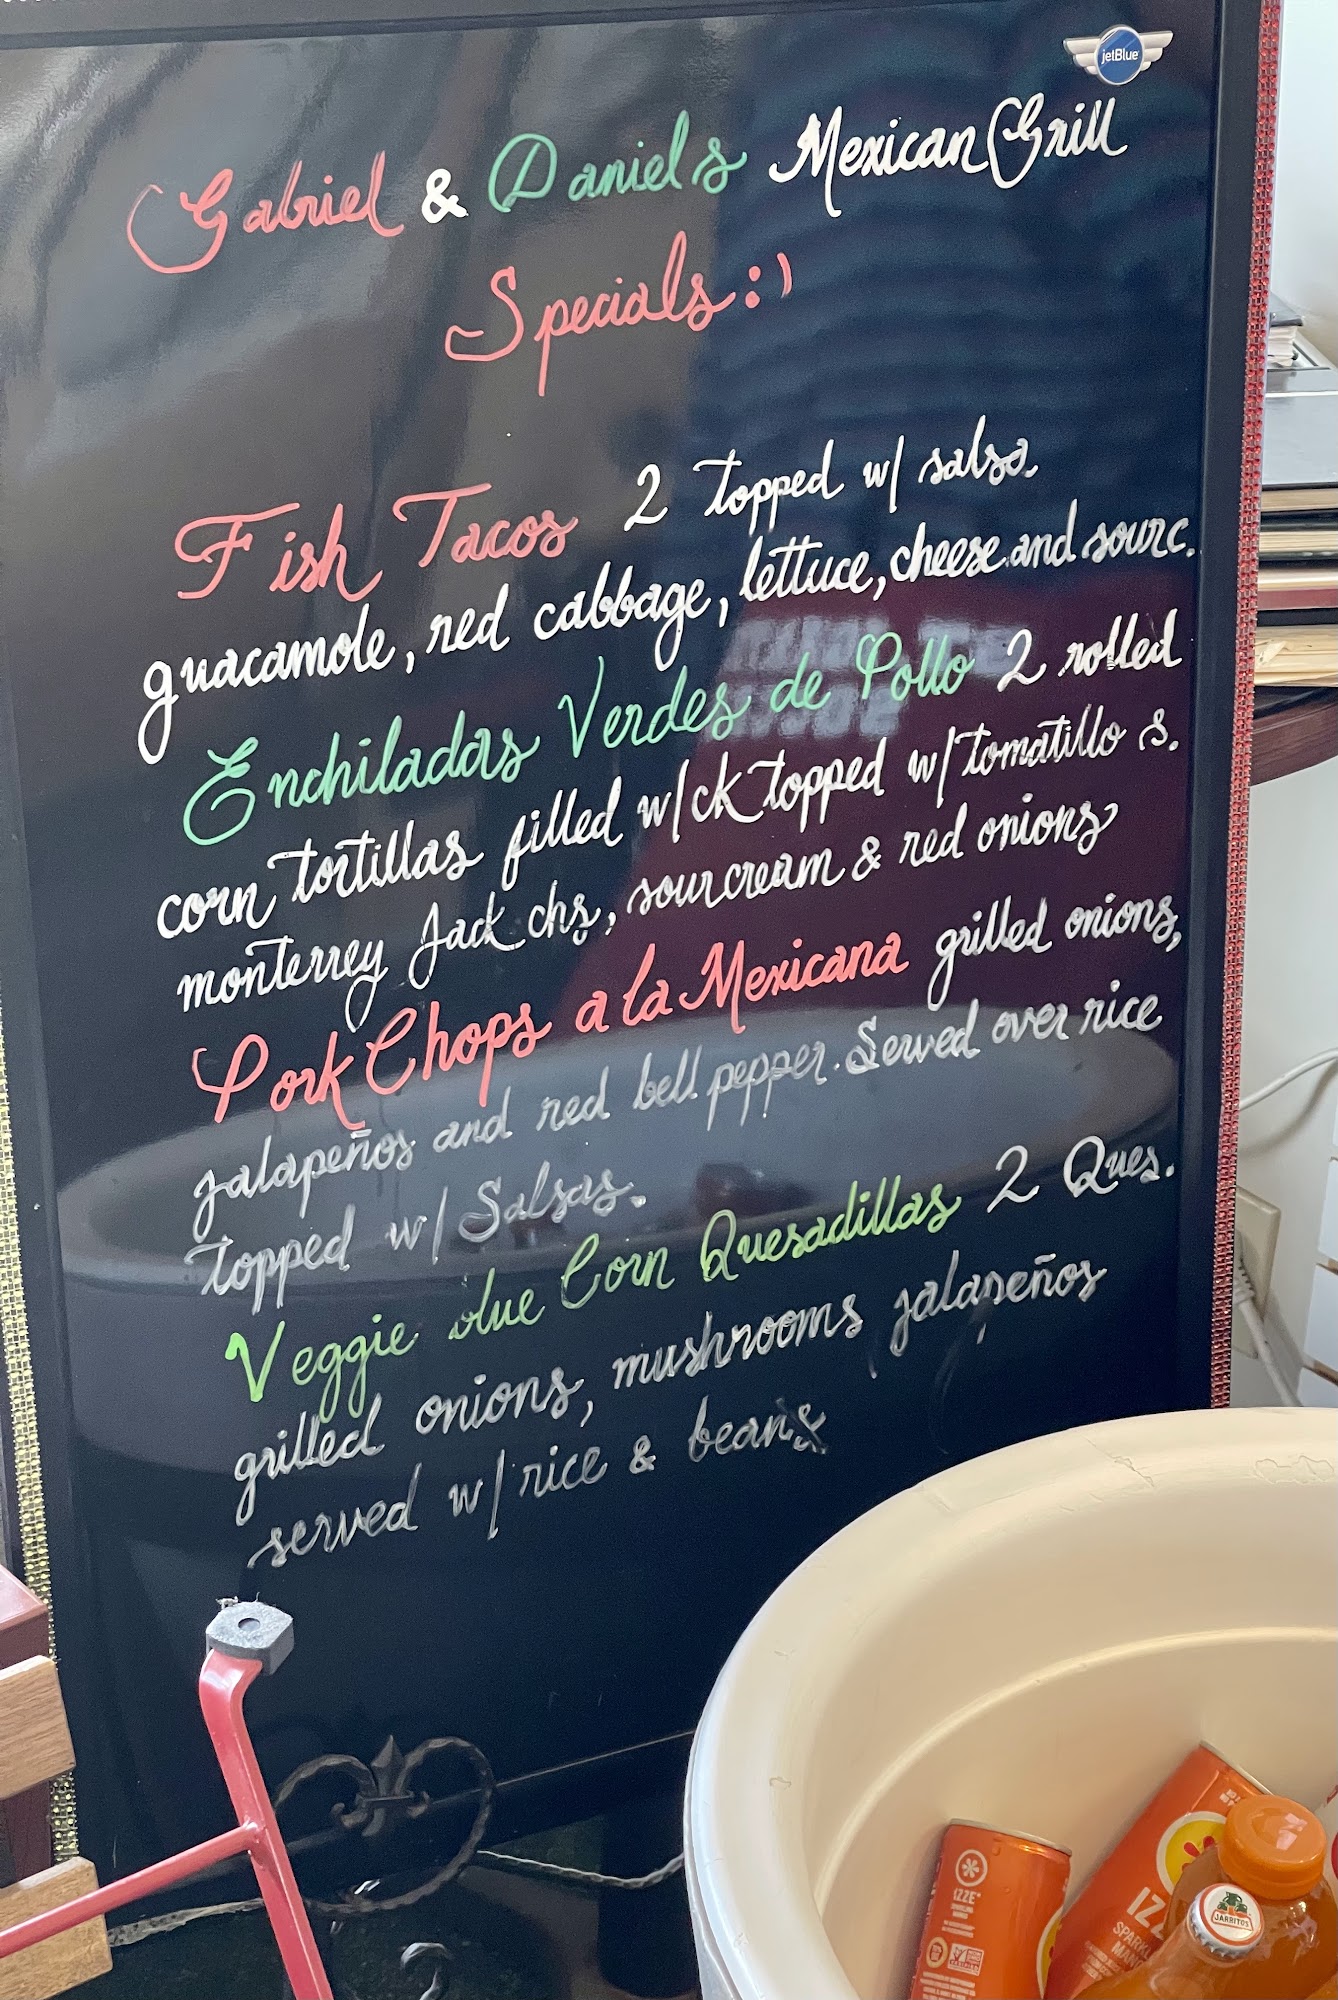 jetBlue
Gabriel & Daniels Mexican Grill
Specials :)
Fish Tacos 2 topped w/ salsa.
guacamole, red cabbage, lettuce, cheese and sourc.
Enchiladas Verdes de Pollo 2 rolled
corn tortillas filled w/ck topped w/tomatillo s.
monterrey Jack chs, sour cream & red onions
Pork Chops a la Mexicana grilled onions,
jalapeños and red bell pepper. Served over rice
topped w/ Salsas.
Veggie blue Corn Quesadillas 2 Ques.
grilled onions, mushrooms jalapeños
served w/ rice & beans
IZZE
IZZ
SPARK
MAN
JARRITOS